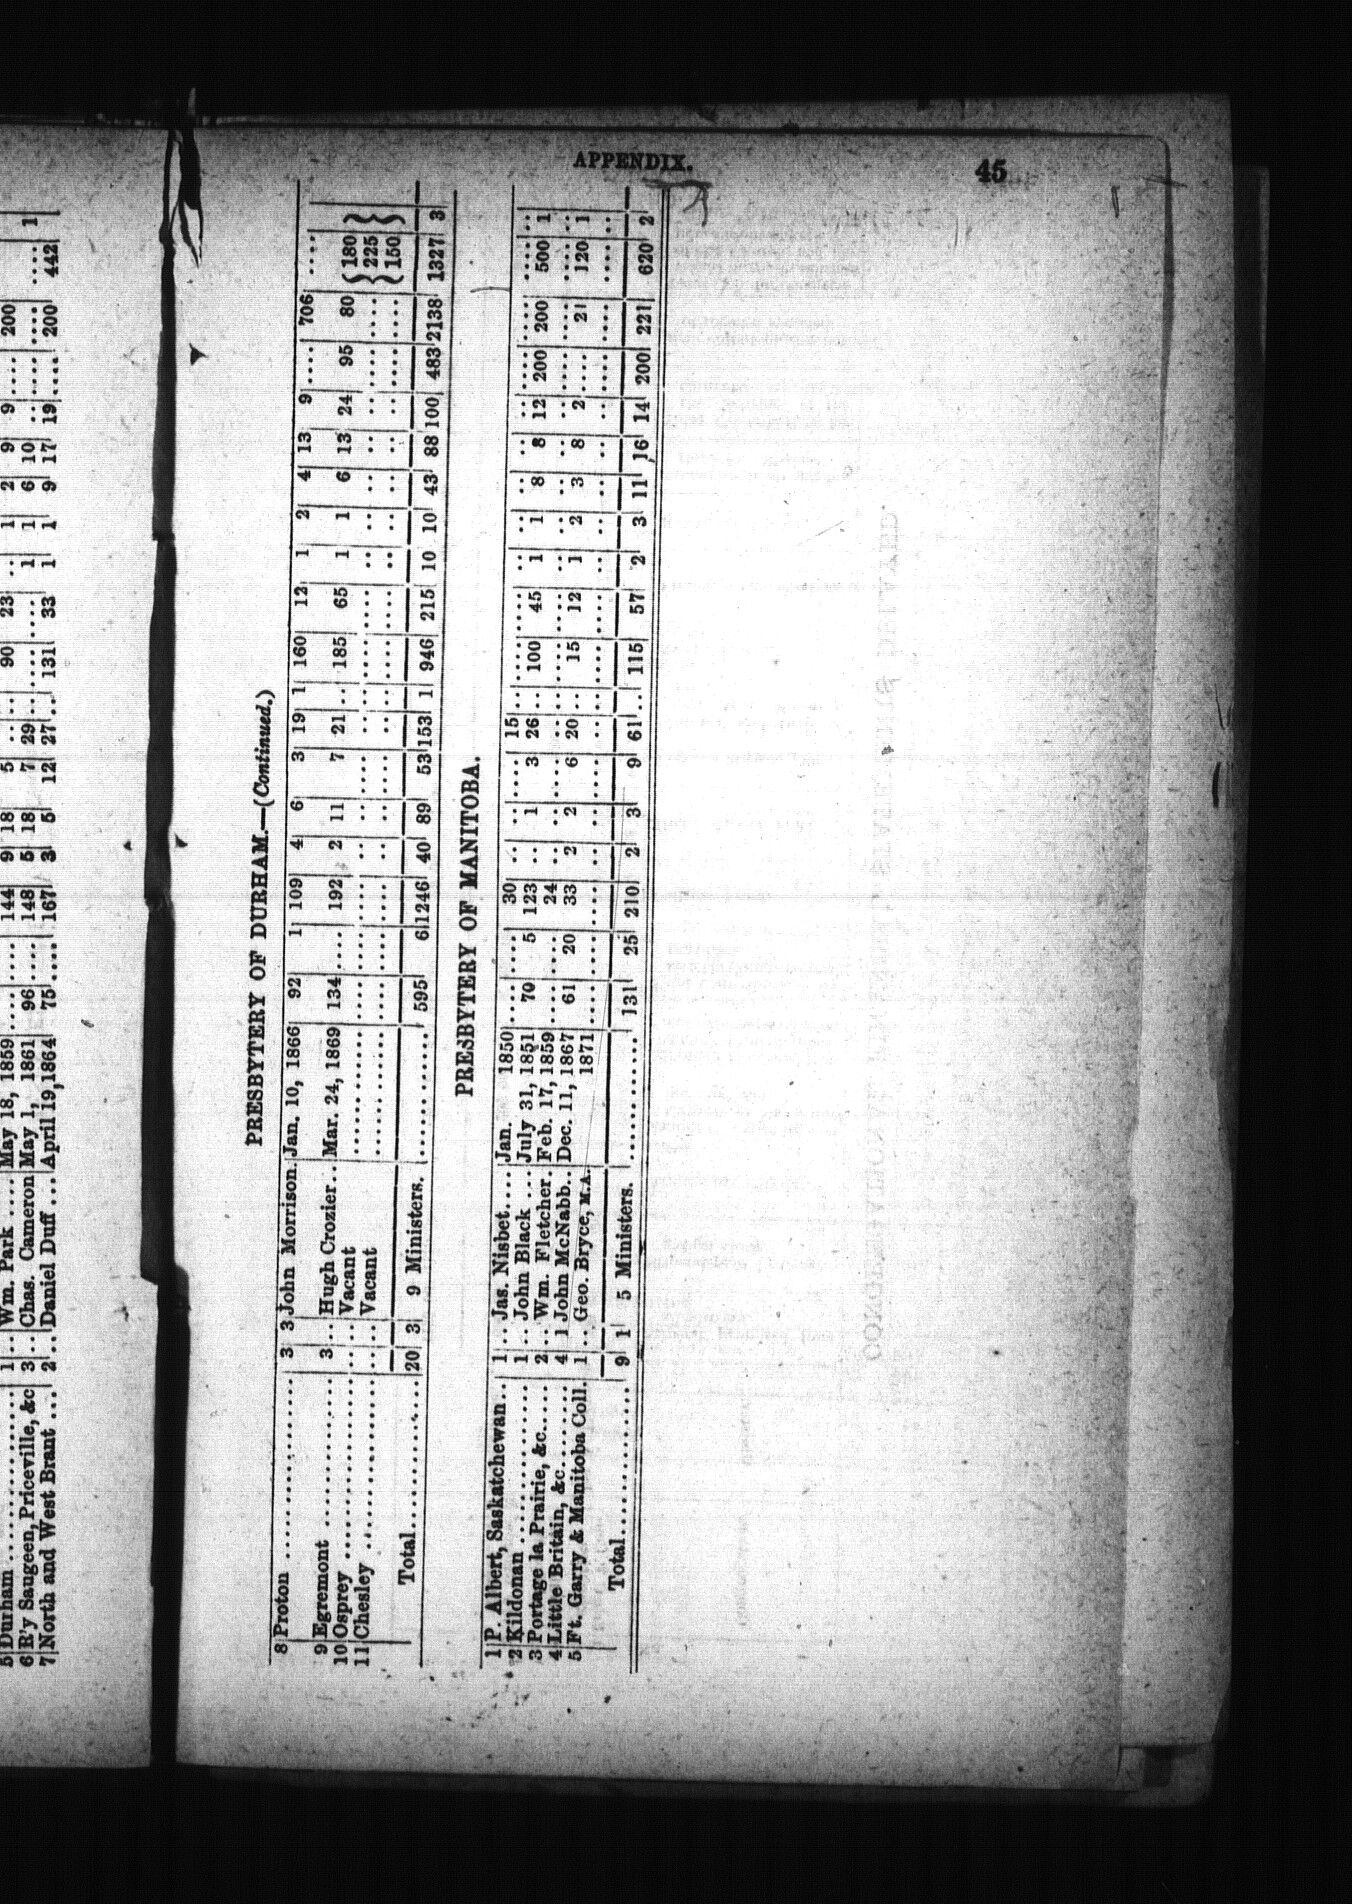 APPENDIX.
45
5 Durham .......... 1 .. Wm. Park .... May 18, 1859 .... .... 144 9 18 5 .. .. 90 23 .. 1 2 9 9 .... 200
6 R'y Saugeen, Priceville, &c 3 .. Chas. Cameron May 1, 1861 96 .... 148 5 18 7 29 .. .... .... 1 1 6 10 .. .... .... .... 1
7 North and West Brant ... 2 .. Daniel Duff ... April 19, 1864 75 .... 167 3 5 12 27 .. 131 33 1 1 9 17 19 .... 200 442
PRESBYTERY OF DURHAM.—(Continued.)
8 Proton .......... 3 3 John Morrison. Jan. 10, 1866 92 1 109 4 6 3 19 1 160 12 1 2 4 13 9 .... 706 ....
9 Egremont .......... 3 .. Hugh Crozier .. Mar. 24, 1869 134 .... 192 2 11 7 21 .. 185 65 1 1 6 13 24 95 80 { 180 }
10 Osprey .......... .. .. Vacant .......... .... .... .... .. .. .... .. .. .... .... .. .. .. .. .. .... .... { 225 }
11 Chesley .......... .. .. Vacant .......... .... .... .... .. .. .... .. .. .... .... .. .. .. .. .. .... .... { 150 }
Total .......... 20 3 9 Ministers. .......... 595 6 1246 40 89 53 153 1 946 215 10 10 43 88 100 483 2138 1327 3
PRESBYTERY OF MANITOBA.
1 P. Albert, Saskatchewan .. 1 .. Jas. Nisbet .... Jan. 1850 .... .... 30 .. .. .... 15 .. .... .... .. .. .. .. .. .... .... .... ..
2 Kildonan .......... 1 .. John Black ... July 31, 1851 70 5 123 .. 1 3 26 .. 100 45 1 1 8 8 12 200 200 500 1
3 Portage la Prairie, &c ..... 2 .. Wm. Fletcher . Feb. 17, 1859 .... .... 24 .. .. .... .. .. .... .... .. .. .. .. .. .... .... .... ..
4 Little Britain, &c ....... 4 1 John McNabb .. Dec. 11, 1867 61 20 33 2 2 6 20 .. 15 12 1 2 3 8 2 .... 21 120 1
5 Ft. Garry & Manitoba Coll. 1 .. Geo. Bryce, M.A. 1871 .... .... .... .. .. .... .. .. .... .... .. .. .. .. .. .... .... .... ..
Total .......... 9 1 5 Ministers. .......... 131 25 210 2 3 9 61 .. 115 57 2 3 11 16 14 200 221 620 2